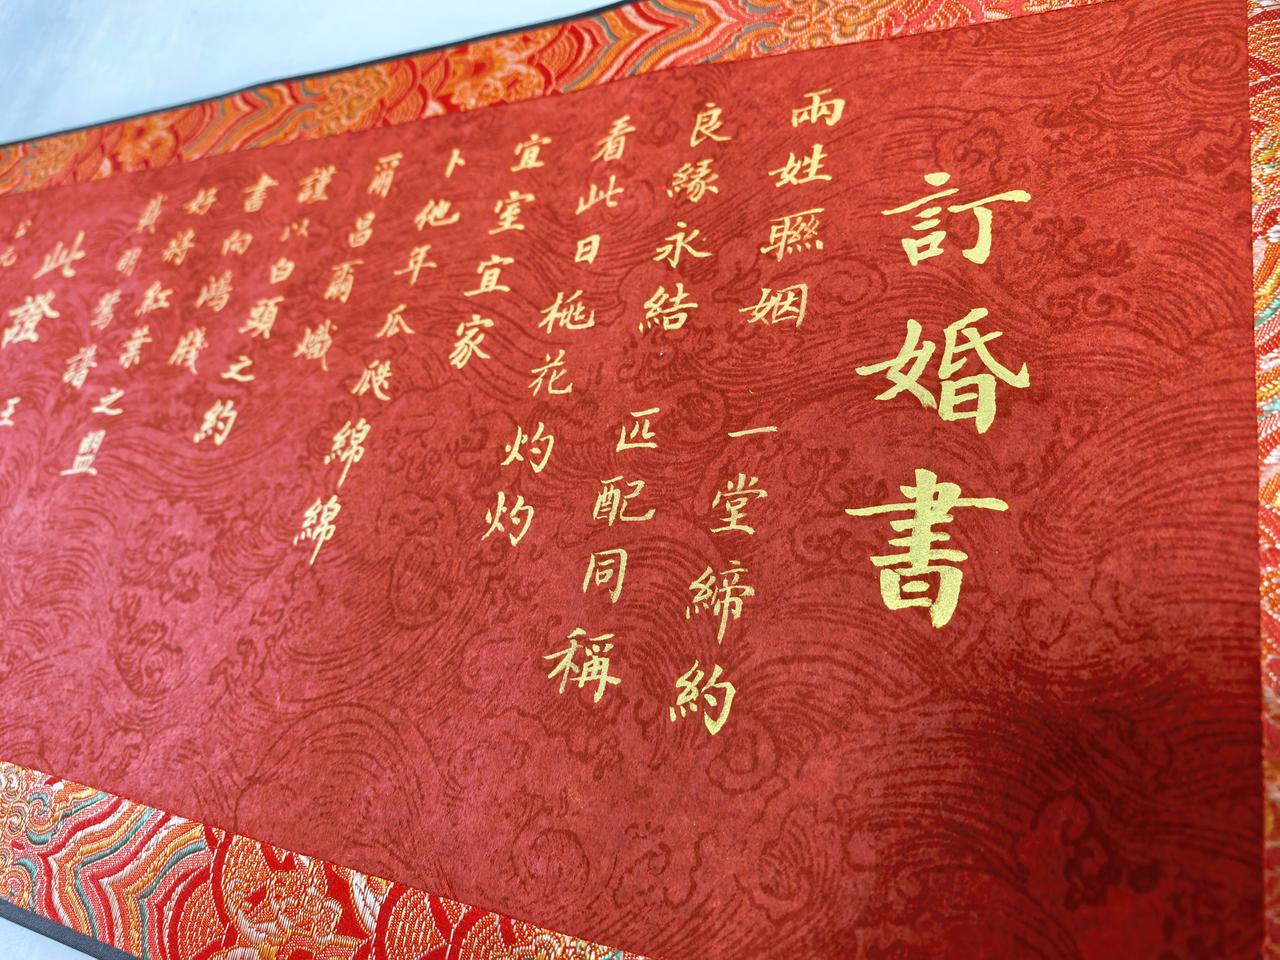 訂婚書
兩姓聯姻 一堂締約
良緣永結 匹配同稱
看此日桃花灼灼
宜室宜家
卜他年瓜瓞綿綿
爾昌爾熾
謹以白頭之約
書向鴻牋
好將紅葉之盟
載明鴛譜
此證